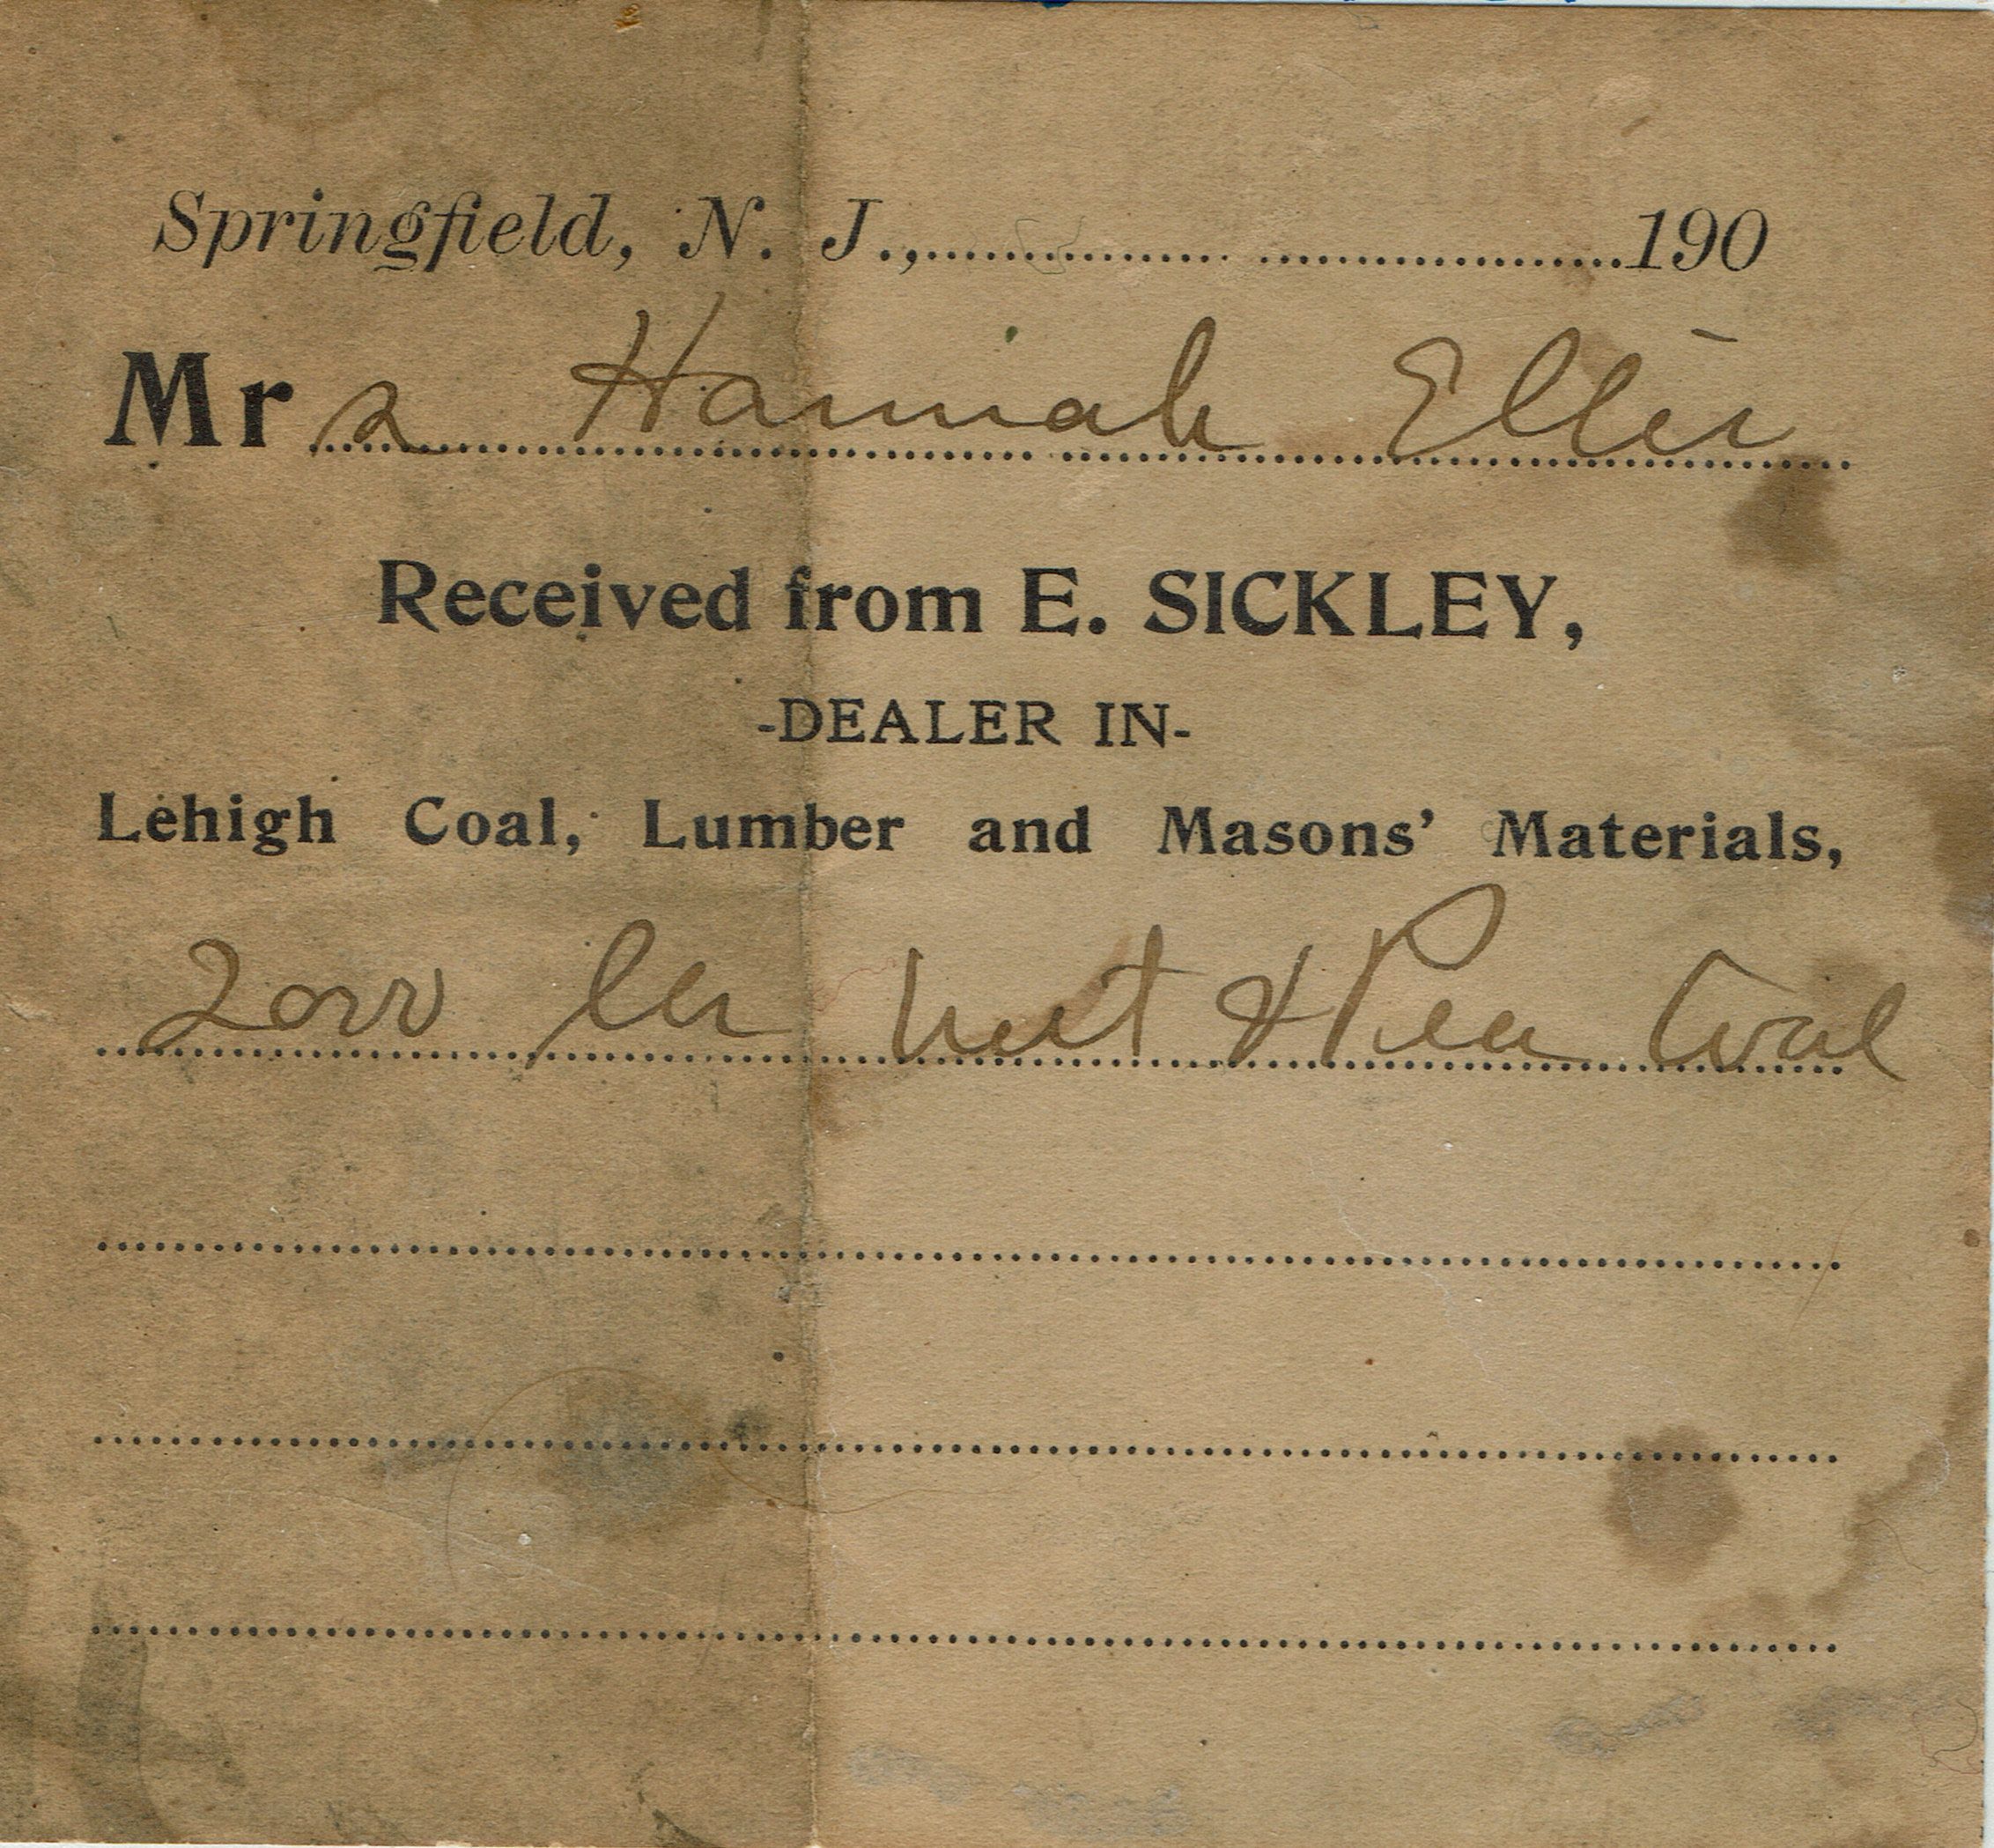 Springfield, N. J., 190
Mrs Hannah Ellis
Received from E. SICKLEY,
-DEALER IN-
Lehigh Coal, Lumber and Masons' Materials,
2000 nut & Pea Coal